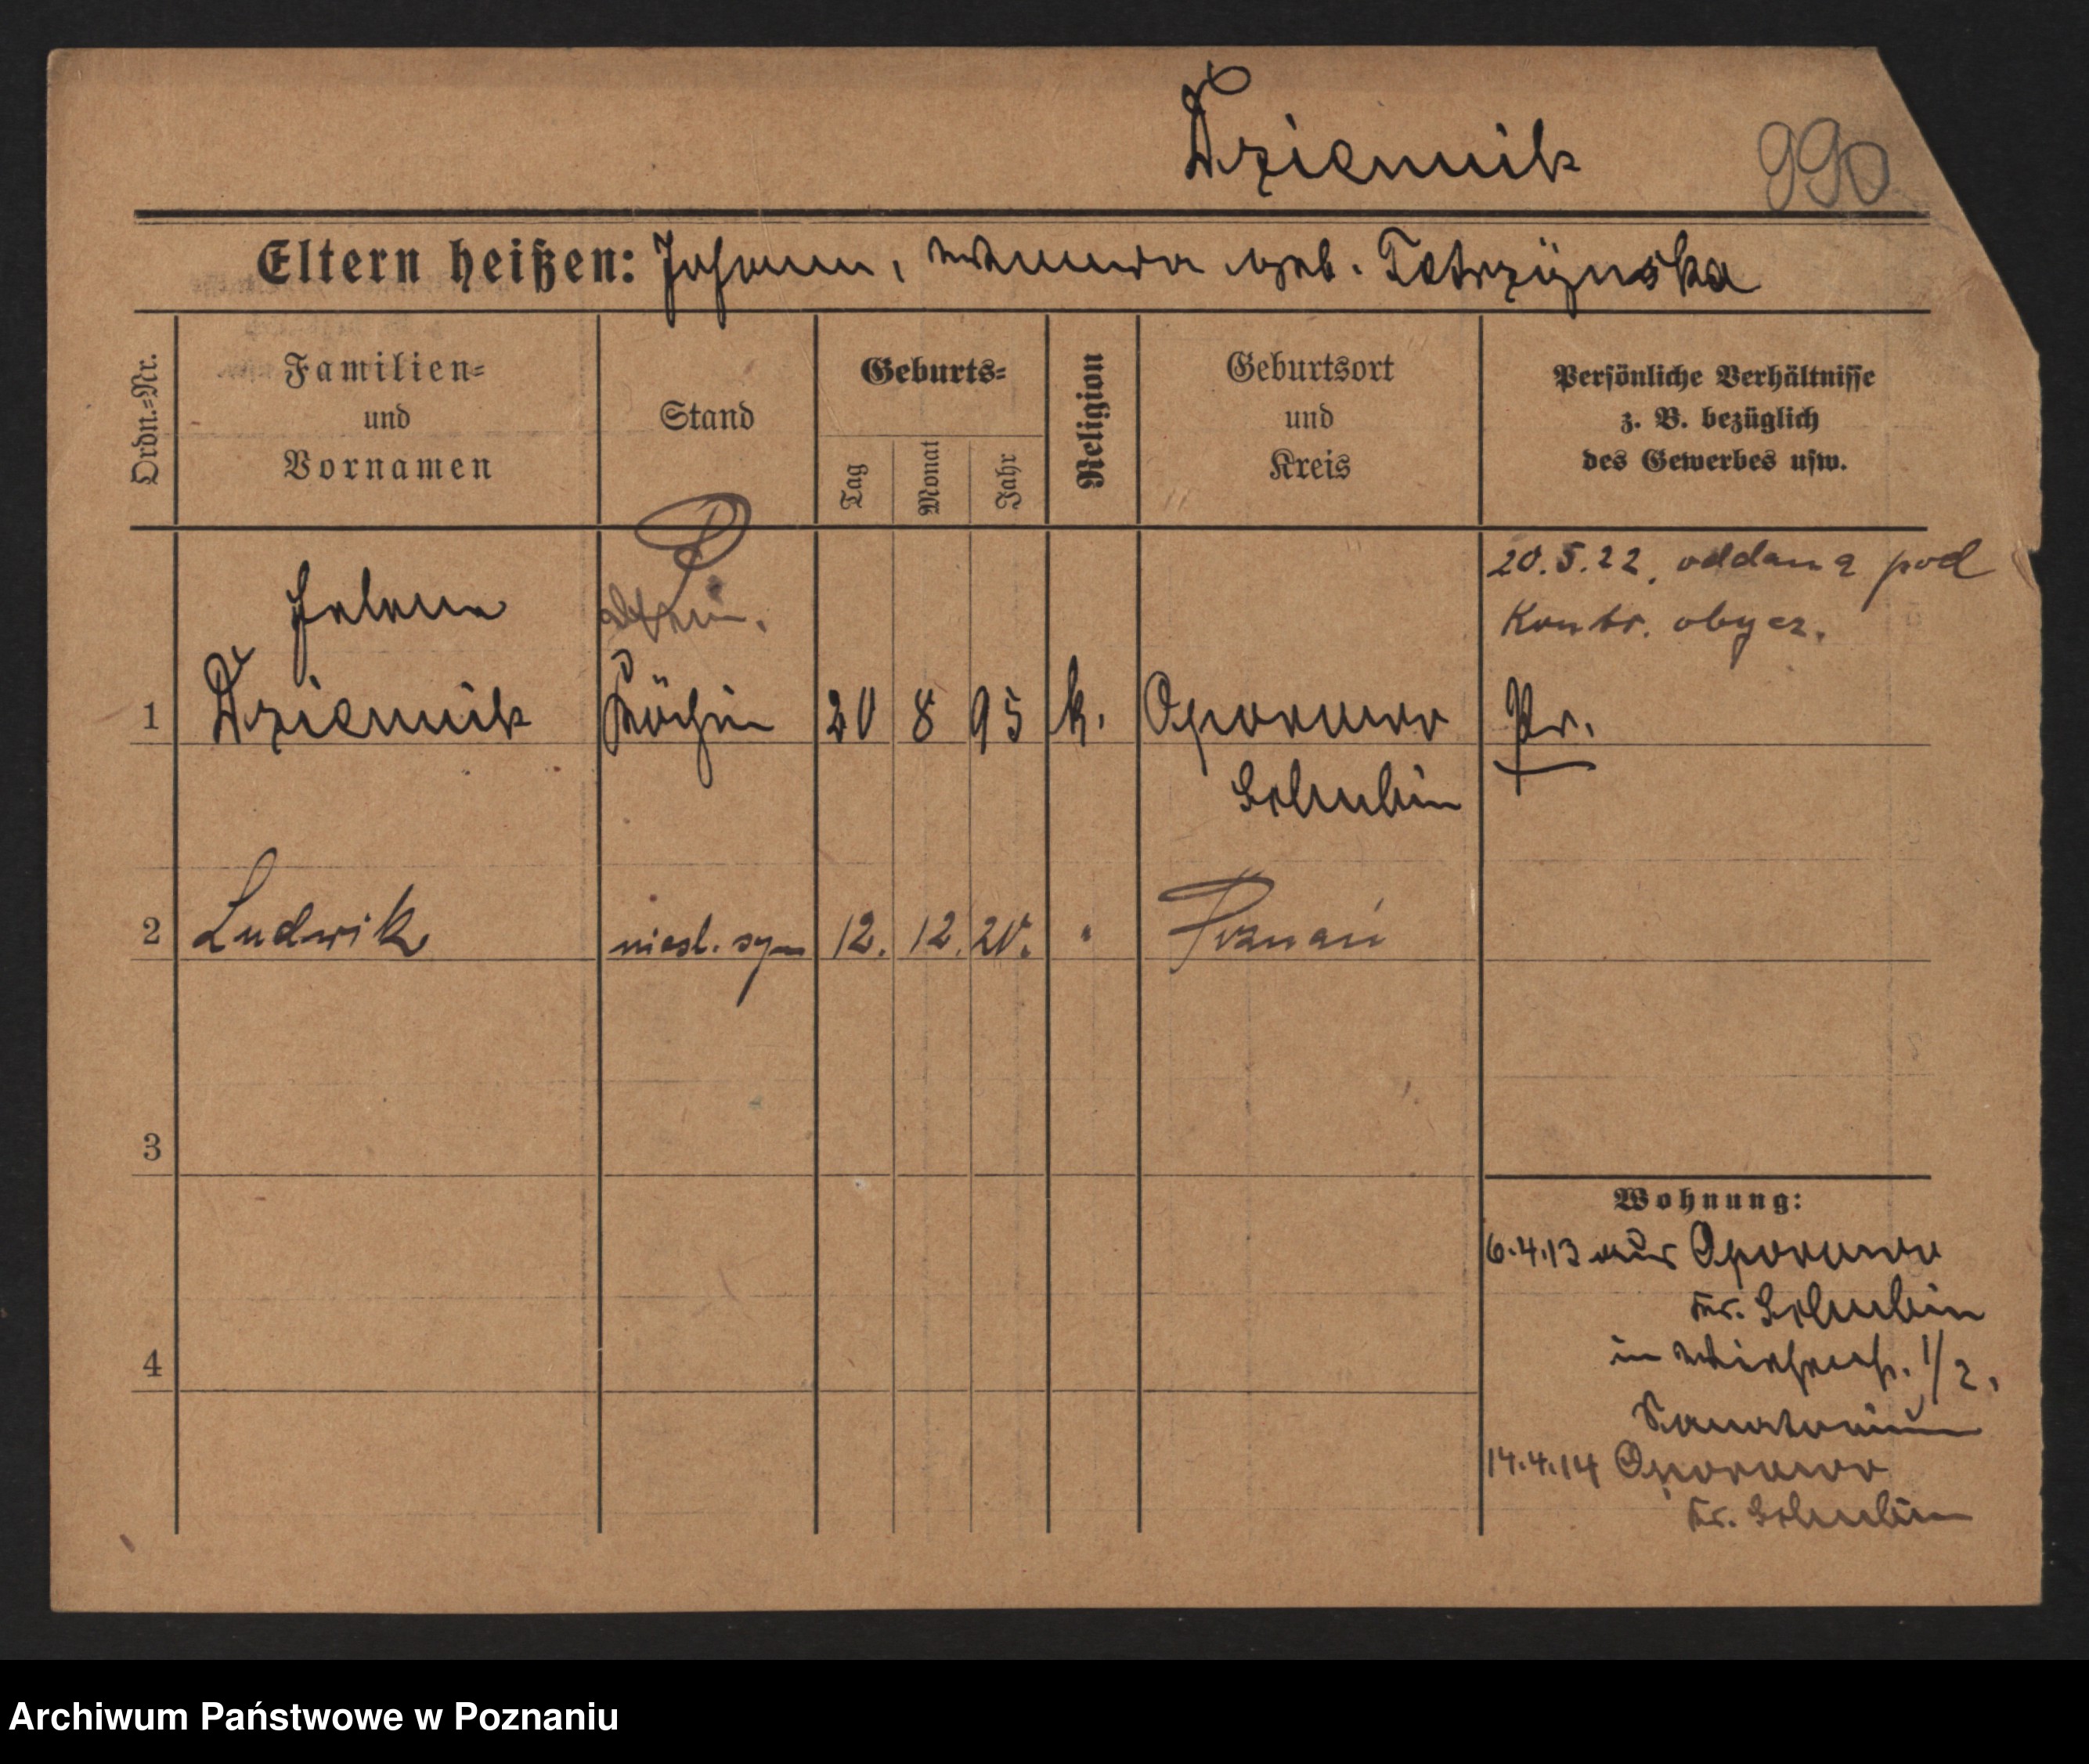 Dziennik 990
Eltern heißen: Johann, Wanda geb. Tetrzÿnska
Ordn.-Nr.
Familien-
und
Vornamen
Stand
Geburts-
Tag
Monat
Jahr
Religion
Geburtsort
und
Kreis
Persönliche Verhältnisse
z. B. bezüglich
des Gewerbes usw.
Helena
20.5.22. oddana pod
Kontr. obycz.
1 Dziennik Köchin 20 8 95 k. Oporowo Pr.
Schubin
2 Ludwik niesl. syn 12. 12. 20. " Poznań
3
Wohnung:
6.4.13 aus Oporowo
Kr. Schubin
4
in 1/2.
Sanatorium
14.4.14 Oporowo
Kr. Schubin
Archiwum Państwowe w Poznaniu